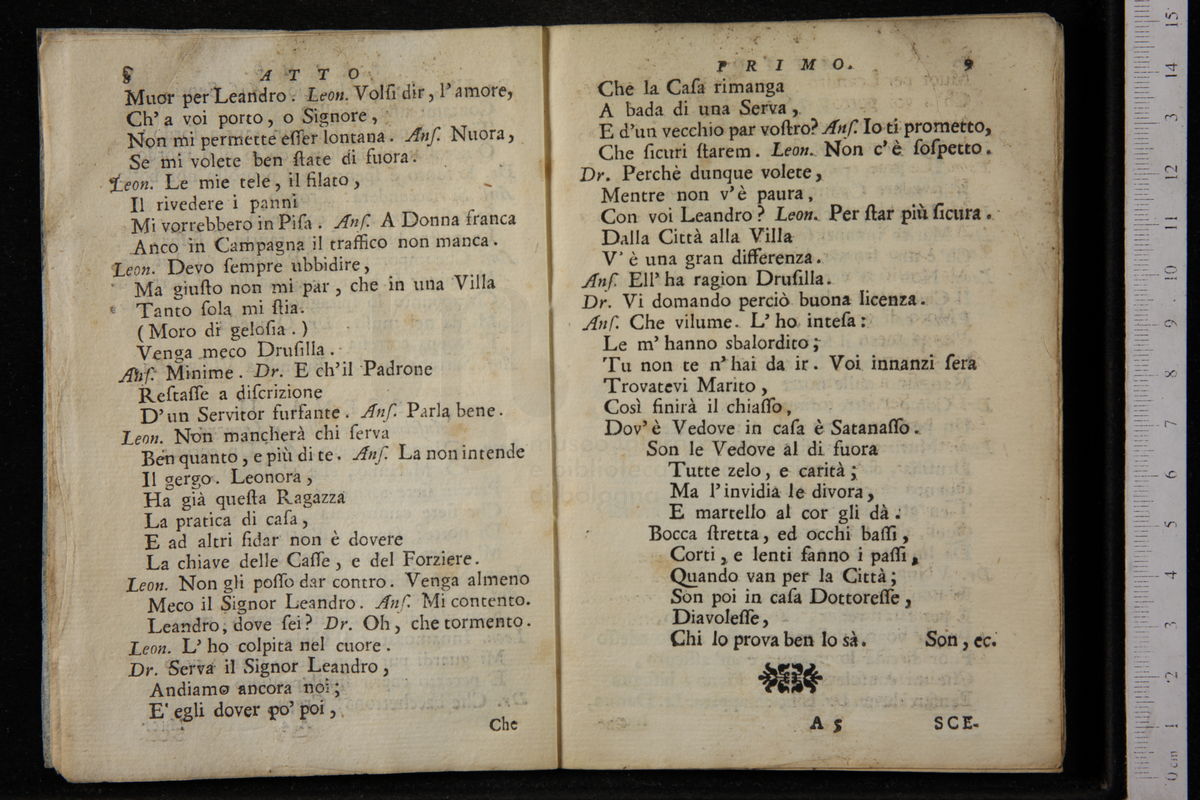 8 ATTO
Muor per Leandro. Leon. Volſi dir, l'amore,
Ch' a voi porto, o Signore,
Non mi permette eſſer lontana. Anſ. Nuora,
Se mi volete ben ſtate di fuora.
Leon. Le mie tele, il filato,
Il rivedere i panni
Mi vorrebbero in Piſa. Anſ. A Donna franca
Anco in Campagna il traffico non manca.
Leon. Devo ſempre ubbidire,
Ma giuſto non mi par, che in una Villa
Tanto ſola mi ſtia.
(Moro di geloſia.)
Venga meco Druſilla.
Anſ. Minime. Dr. E ch'il Padrone
Reſtaſſe a diſcrizione
D'un Servitor furfante. Anſ. Parla bene.
Leon. Non mancherà chi ſerva
Ben quanto, e più di te. Anſ. La non intende
Il gergo. Leonora,
Ha già queſta Ragazza
La pratica di caſa,
E ad altri fidar non è dovere
La chiave delle Caſſe, e del Forziere.
Leon. Non gli poſſo dar contro. Venga almeno
Meco il Signor Leandro. Anſ. Mi contento.
Leandro, dove ſei? Dr. Oh, che tormento.
Leon. L' ho colpita nel cuore.
Dr. Serva il Signor Leandro,
Andiamo ancora noi;
E' egli dover po' poi,
Che
PRIMO. 9
Che la Caſa rimanga
A bada di una Serva,
E d'un vecchio par voſtro? Anſ. Io ti prometto,
Che ſicuri ſtarem. Leon. Non c'è ſoſpetto.
Dr. Perchè dunque volete,
Mentre non v'è paura,
Con voi Leandro? Leon. Per ſtar più ſicura.
Dalla Città alla Villa
V' è una gran differenza.
Anſ. Ell' ha ragion Druſilla.
Dr. Vi domando perciò buona licenza.
Anſ. Che vilume. L' ho inteſa:
Le m' hanno sbalordito;
Tu non te n' hai da ir. Voi innanzi ſera
Trovatevi Marito,
Così finirà il chiaſſo,
Dov' è Vedove in caſa è Satanaſſo.
Son le Vedove al di fuora
Tutte zelo, e carità;
Ma l'invidia le divora,
E martello al cor gli dà.
Bocca ſtretta, ed occhi baſſi,
Corti, e lenti fanno i paſſi,
Quando van per la Città;
Son poi in caſa Dottoreſſe,
Diavoleſſe,
Chi lo prova ben lo sà. Son, ec.
A 5 SCE-